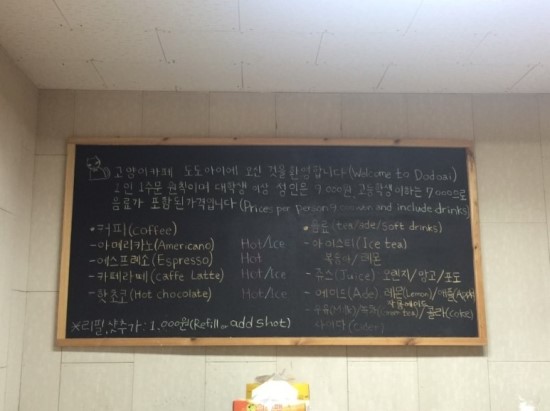 고양이카페 도도아이에 오신 것을 환영합니다 (Welcome to Dodoai)
1인 1주문 원칙이며 대학생 이상 성인은 9,000원, 고등학생이하는 7,000으로
음료가 포함된가격입니다 (Prices per person and include drinks)
•커피(coffee)
-아메리카노(Americano) Hot/Ice
-에스프레소(Espresso) Hot
-카페라떼(caffe Latte) Hot/Ice
-핫초코(Hot chocolate) Hot/Ice
※리필,샷추가: 1,000원(Refill or add shot)
•음료(tea/ade/Soft drinks)
-아이스티(Ice tea)
복숭아/레몬
-쥬스(Juice) 오렌지/망고/포도
-에이드(Ade) 레몬(Lemon)/애플(Apple)
자몽에이드
/콜라(coke)
사이다(cider)